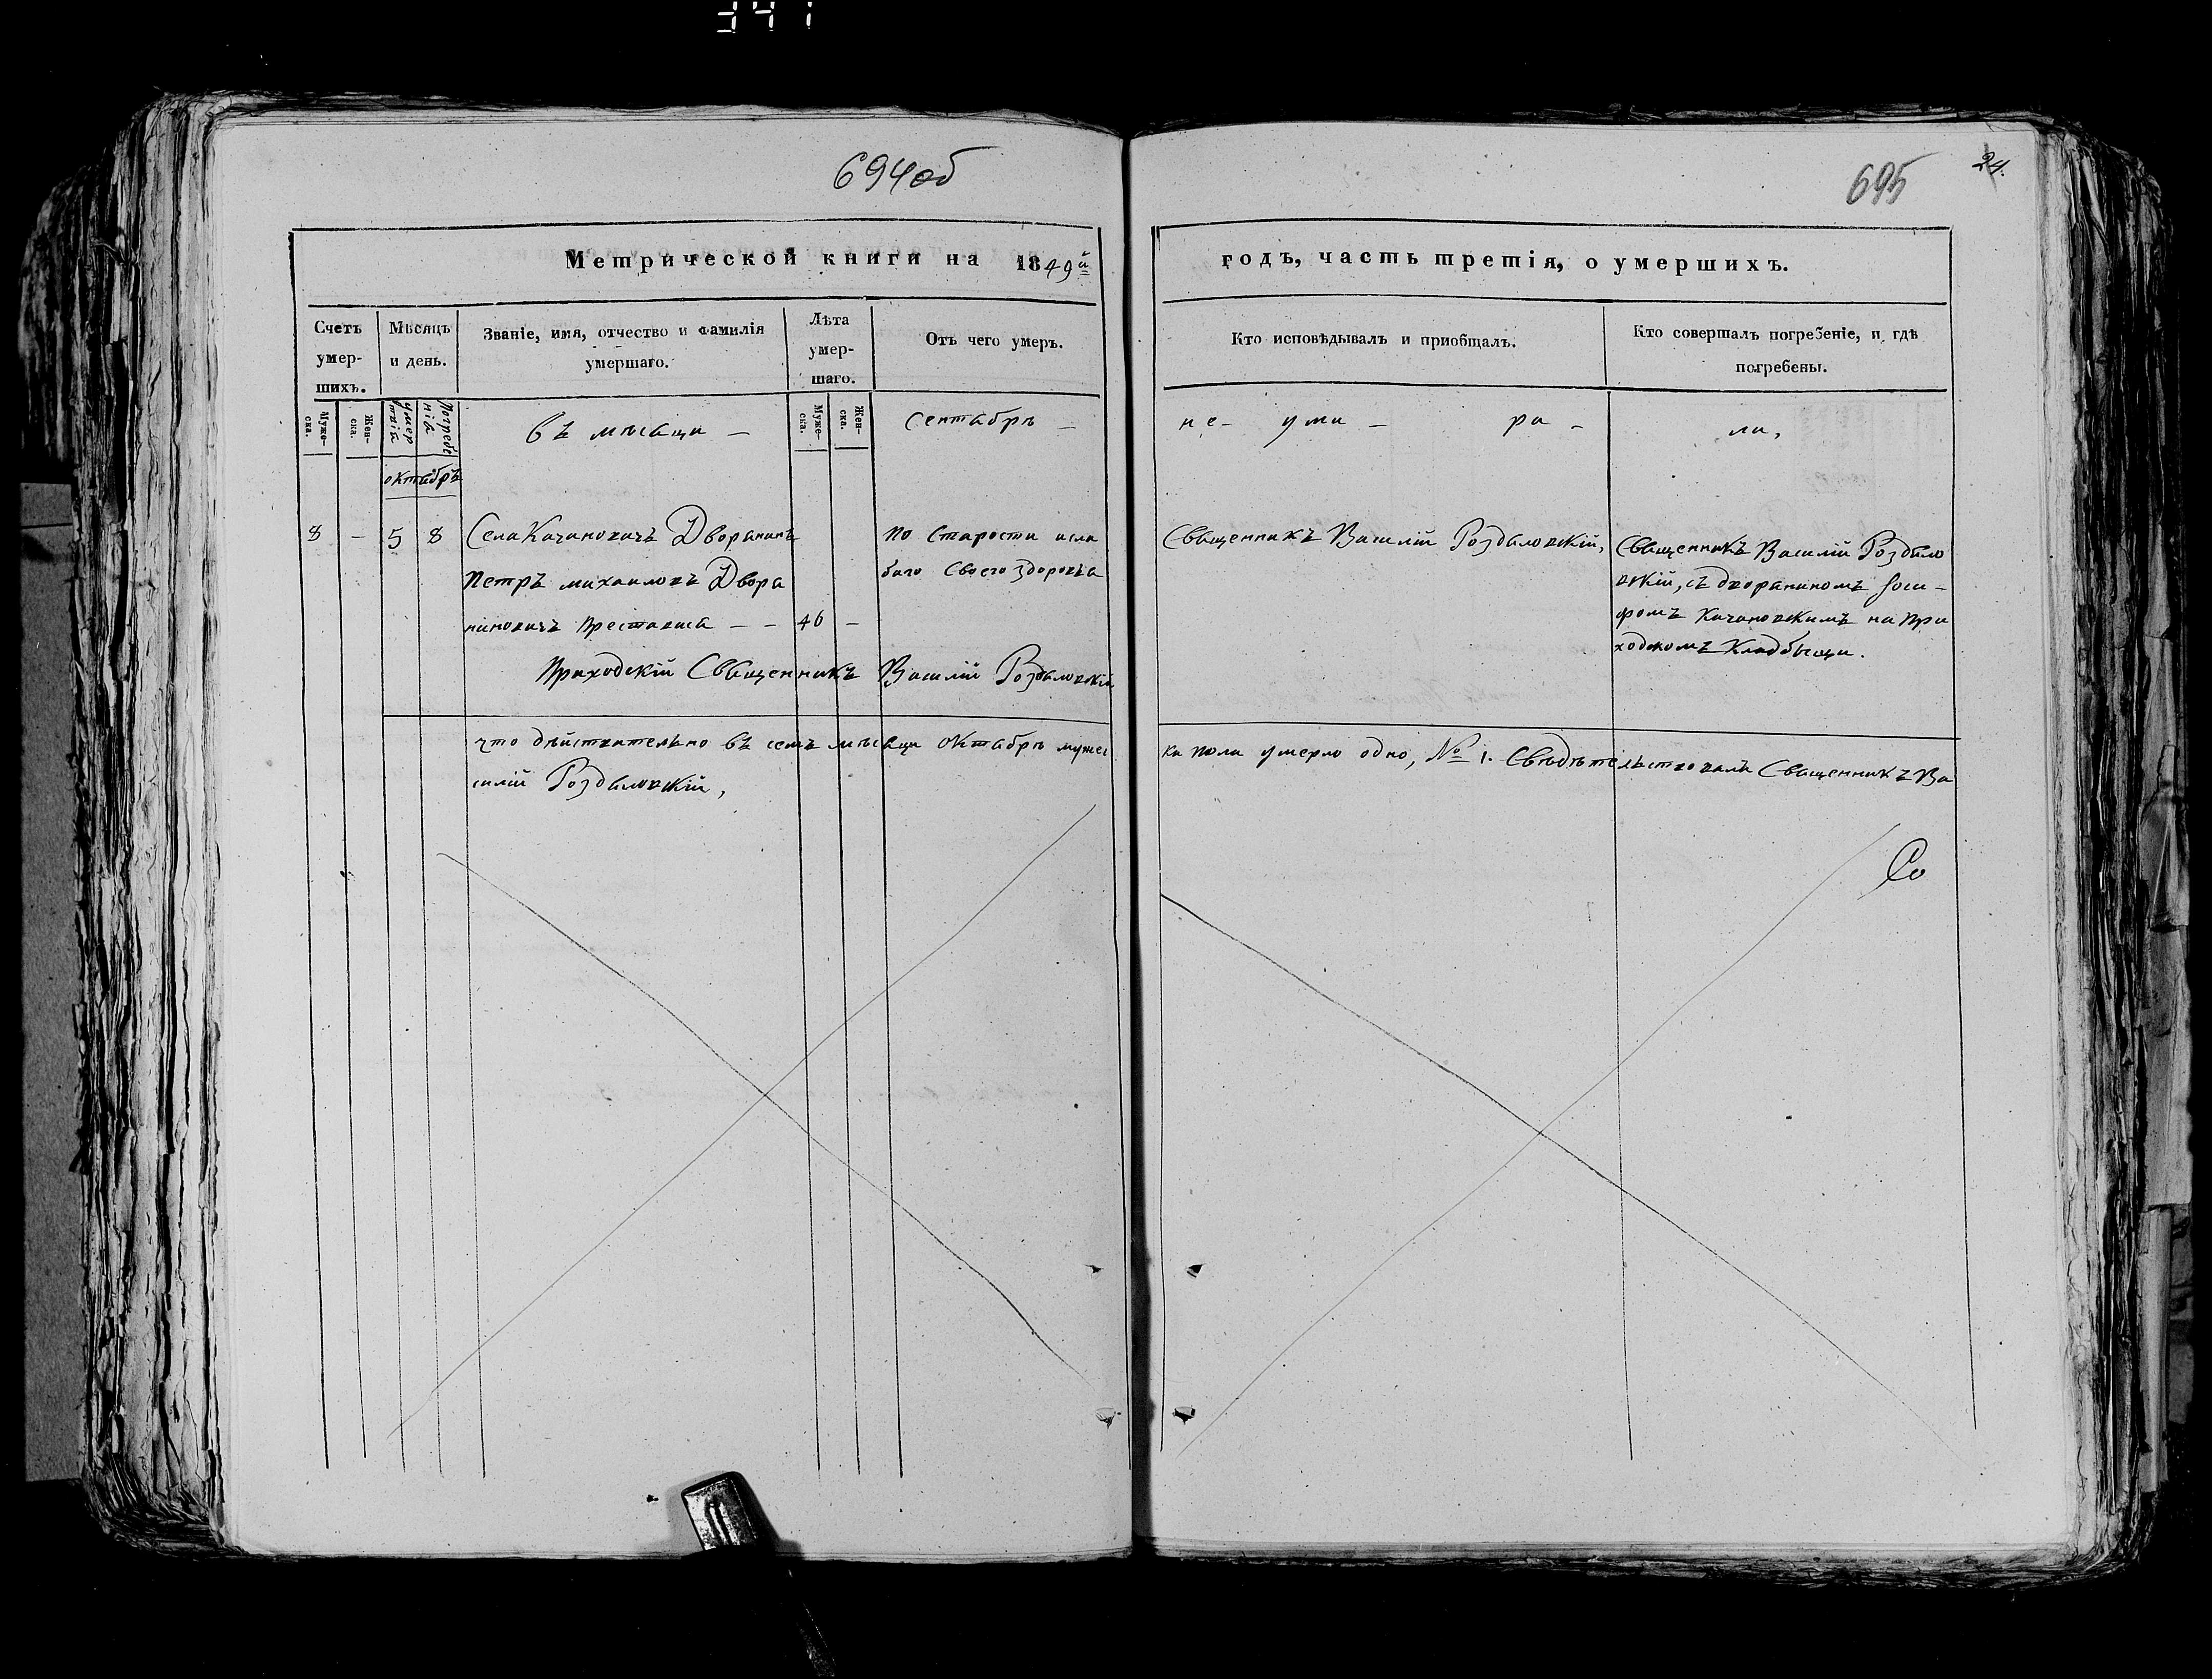 341
694об
695
24.
Метрической книги на 1849й
годъ, часть третія, о умершихъ.
Счетъ умер-шихъ.
Мѣсяцъ и день.
Званіе, имя, отчество и фамилія умершаго.
Лѣта умер-шаго.
Отъ чего умеръ.
Кто исповѣдывалъ и пріобщалъ.
Кто совершалъ погребеніе, и гдѣ погребены.
Муже-ска.
Жен-ска.
умертвія
Погребенія
Муже-ска.
Жен-ска.
въ мѣсяци – Сентябрѣ – не – уми – ра – ли,
октябрѣ
8 – 5 8 Села Качановичъ Дворянинъ
Петръ михаиловъ Двора
ниновичъ преставися – – 46 –
по старости исла
баго своего здоровья
Священникъ Василій Роздяловскій,
Священникъ Василій Роздяло
вскій, съ дворяниномъ Іоси-
фомъ Качановскимъ на при
ходскомъ кладбищи.
Приходскій Священникъ Василій Роздяловскій
что дѣйствительно въ семъ мѣсяци октябрѣ мужес
ка пола умерло одно, № 1. Свѣдѣтельствовалъ Священникъ Ва
силій Роздяловскій,
Со